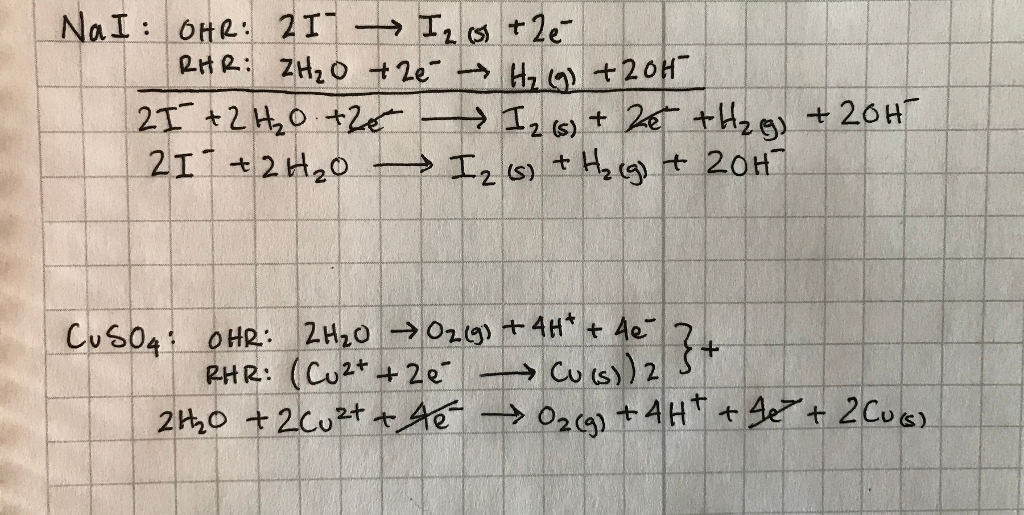 NaI: OHR: 2I⁻ → I₂ (s) + 2e⁻
RHR: 2H₂O + 2e⁻ → H₂ (g) + 2OH⁻
2I⁻ + 2H₂O + 2e⁻ → I₂ (s) + 2e⁻ + H₂ (g) + 2OH⁻
2I⁻ + 2H₂O → I₂ (s) + H₂ (g) + 2OH⁻
CuSO₄: OHR: 2H₂O → O₂(g) + 4H⁺ + 4e⁻ } +
RHR: (Cu²⁺ + 2e⁻ → Cu (s)) 2
2H₂O + 2Cu²⁺ + 4e⁻ → O₂(g) + 4H⁺ + 4e⁻ + 2Cu(s)